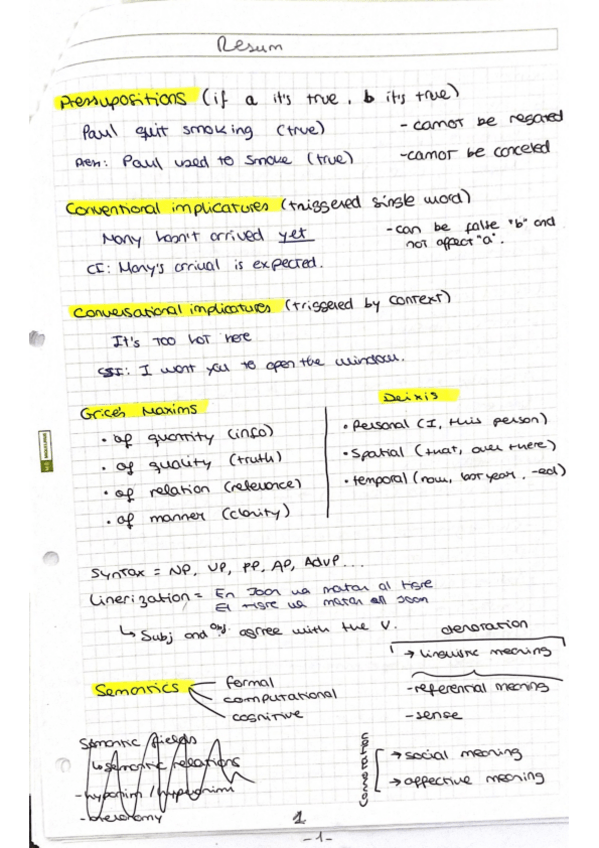 Resum
Pressupositions (if a it's true, b it's true)
Paul quit smoking (true)
- cannot be negated
Pres: Paul used to smoke (true)
- cannot be canceled
Conventional implicatures (triggered single word)
Mary hasn't arrived yet
- can be false "b" and
not affect "a".
CI: Mary's arrival is expected.
Conversational implicatures (triggered by context)
It's too hot here
I want you to open the window.
Grice's Maxims
• of quantity (info)
• of quality (truth)
• of relation (relevance)
• of manner (clarity)
Deixis
• Personal (I, this person)
• Spatial (that, over there)
• temporal (now, last year, -ed)
Syntax = NP, VP, PP, AP, AdvP...
Linerization = En Joan va matar al tigre
El tigre va matar en Joan
↳ Subj and obj. agree with the V.
Semantics
formal
computational
cognitive
denotation
→ linguistic meaning
- referential meaning
- sense
→ social meaning
→ affective meaning
Semantic fields
↳ semantic relations
- hyponim / hyperonim
1.
-1-